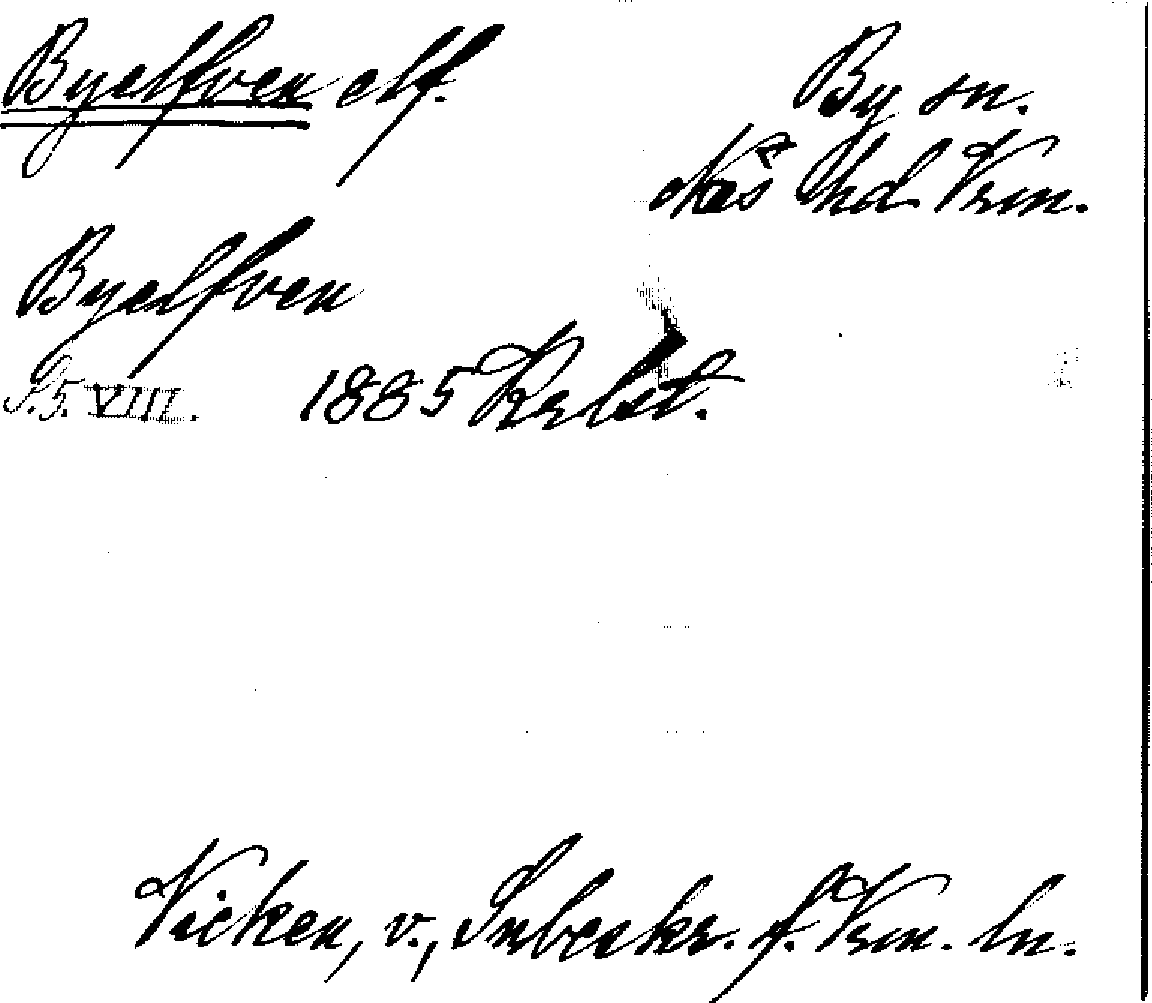 Byelfven elf.
By sn.
Näs Hd Vrm.
Byelfven
S. 5. VIII. 1885 Krbst.
Vicken, v., Snbeskr. f. Vrm. ln.